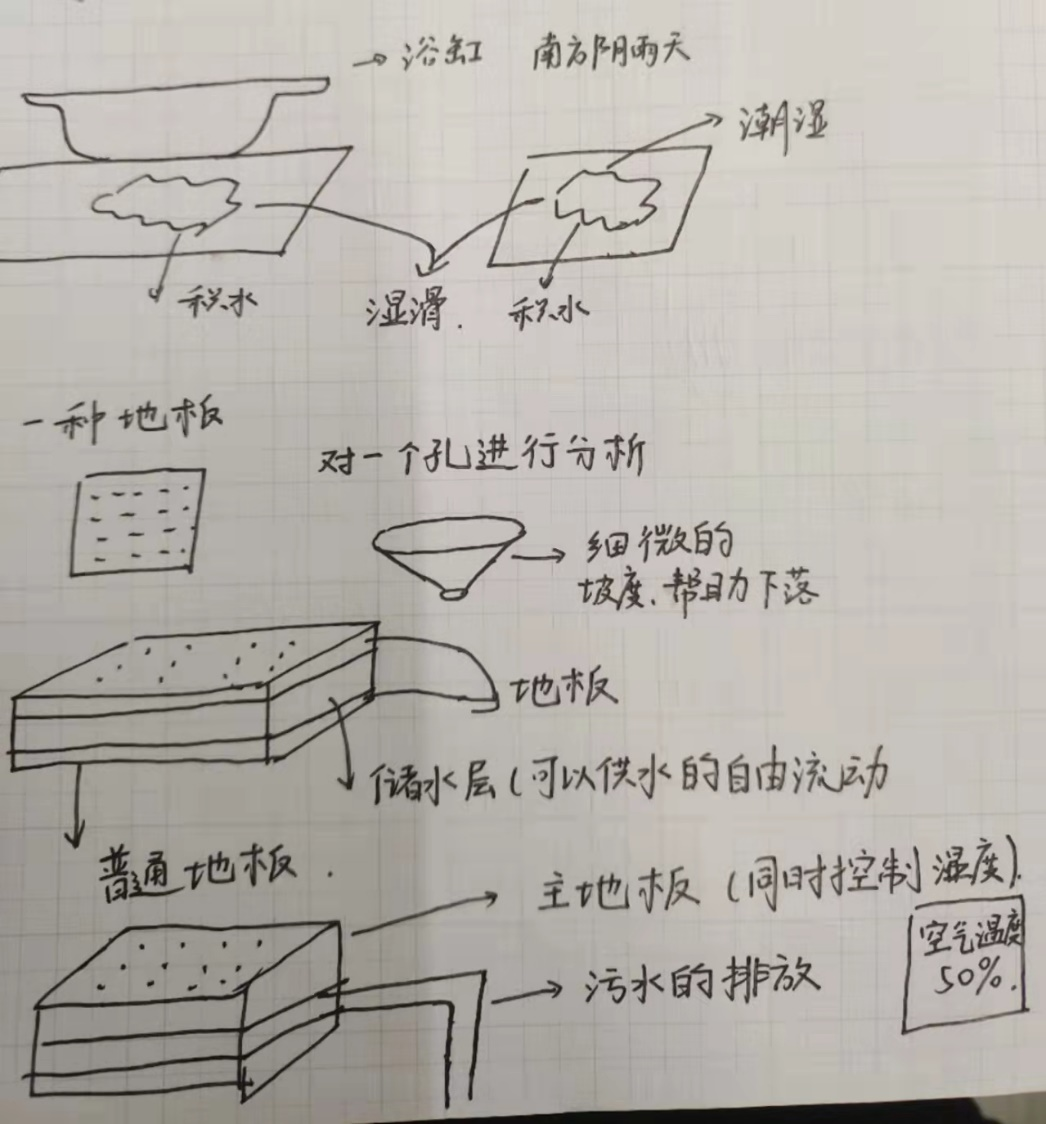 浴缸 南方阴雨天
潮湿
积水
湿滑.
积水
一种地板
对一个孔进行分析
细微的
坡度.帮助下落
地板
储水层(可以供水的自由流动
普通地板.
主地板(同时控制湿度).
空气温度
50%.
污水的排放